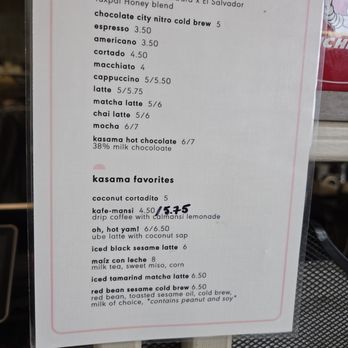 x El Salvador
Honey blend
chocolate city nitro cold brew 5
espresso 3.50
americano 3.50
cortado 4.50
macchiato 4
cappuccino 5/5.50
latte 5/5.75
matcha latte 5/6
chai latte 5/6
mocha 6/7
kasama hot chocolate 6/7
38% milk chocoloate
kasama favorites
coconut cortadito 5
kafe-mansi 4.50/5.75
drip coffee with calmansi lemonade
oh, hot yam! 6/6.50
ube latte with coconut sap
iced black sesame latte 6
maíz con leche 8
milk tea, sweet miso, corn
iced tamarind matcha latte 6.50
red bean sesame cold brew 6.50
red bean, toasted sesame oil, cold brew,
milk of choice, *contains peanut and soy*